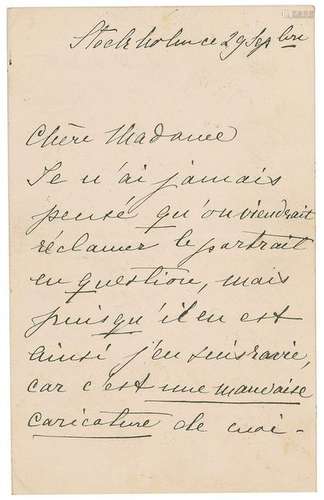 Stockholm ce 29 Septbre
Chère Madame
Je n'ai jamais
pensé qu'on viendrait
réclamer le portrait
en question, mais
puisqu'il en est
ainsi j'en suis ravie,
car c'est une mauvaise
caricature de moi-